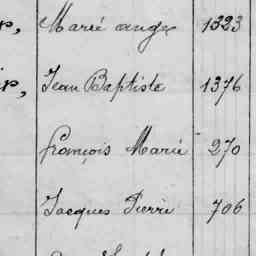 Marie ange 1323
Jean Baptiste 1376
françois Marie 270
Jacques Pierre 706